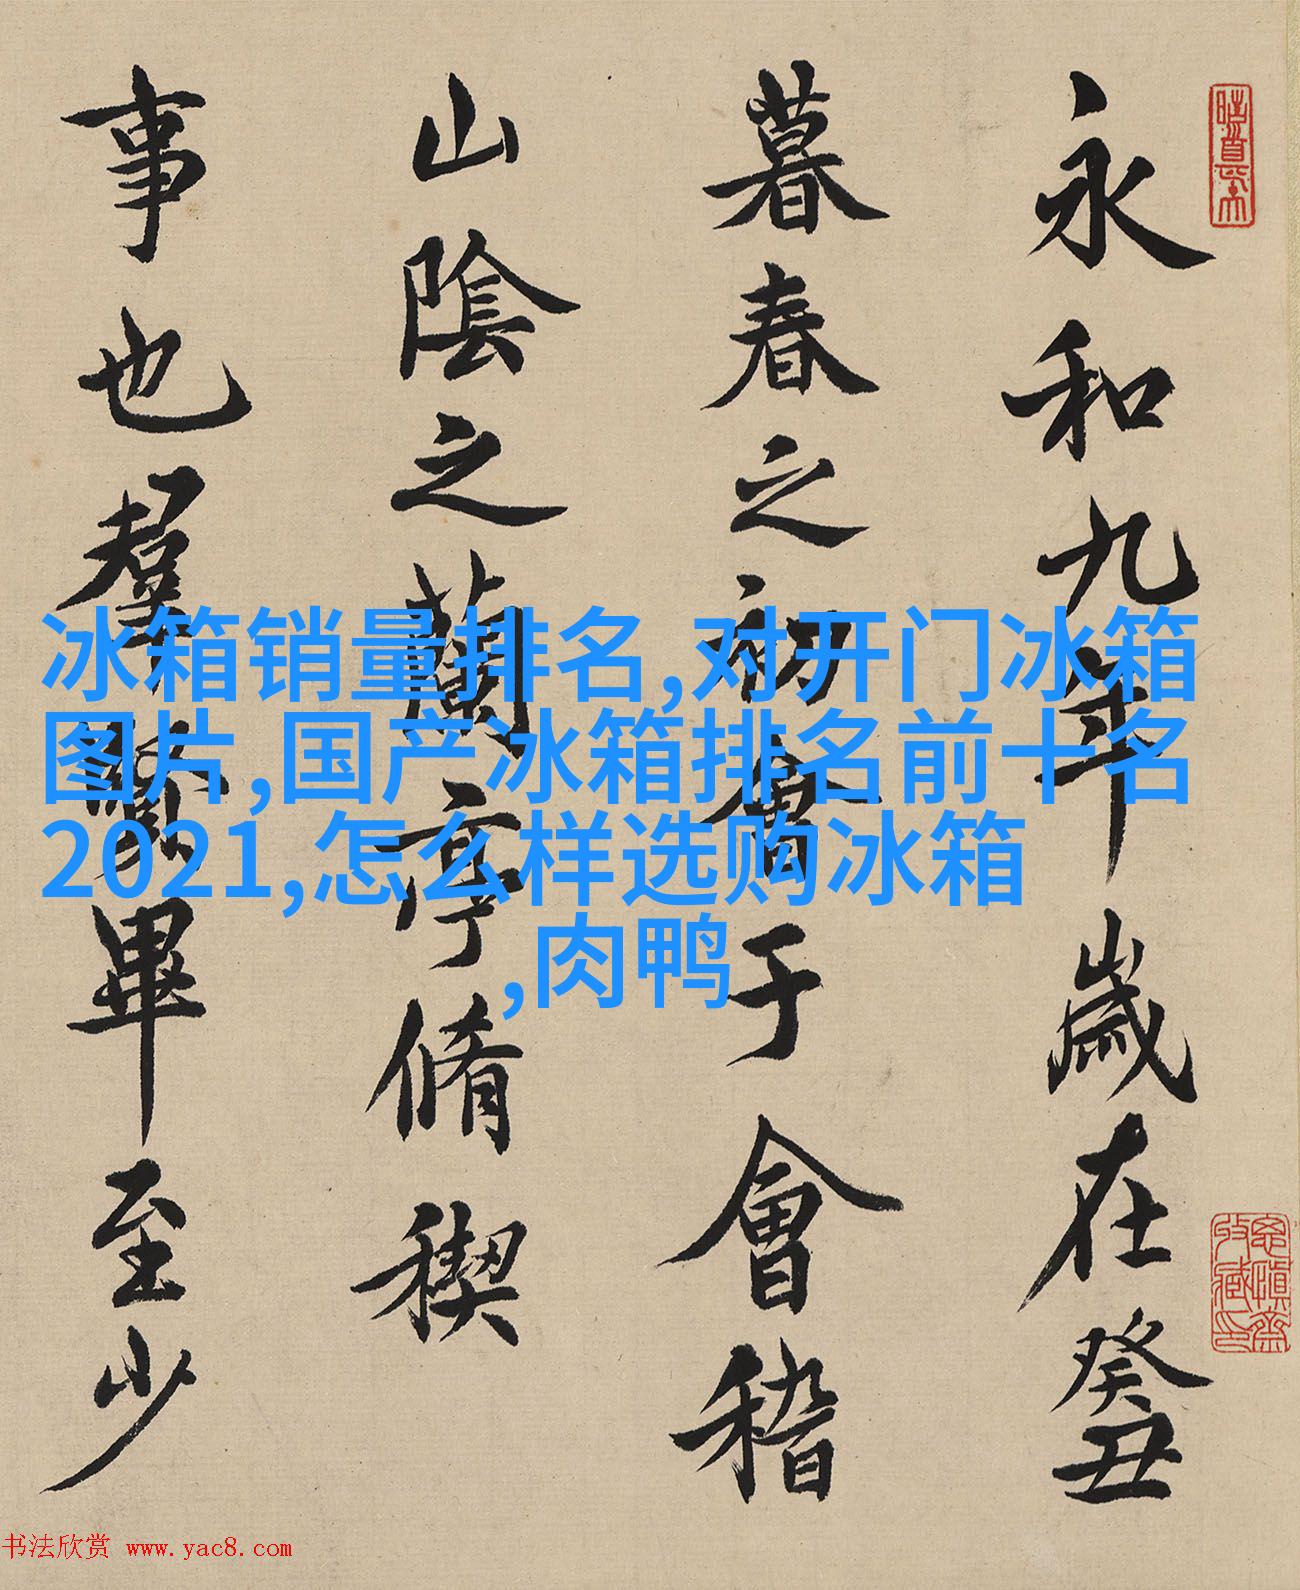 永和九年歲在癸丑
暮春之初會于會稽
山陰之蘭亭脩稧
事也羣賢畢至少
冰箱销量排名,对开门冰箱
图片,国产冰箱排名前十名
2021,怎么样选购冰箱
,肉鸭
书法欣赏 www.yac8.com